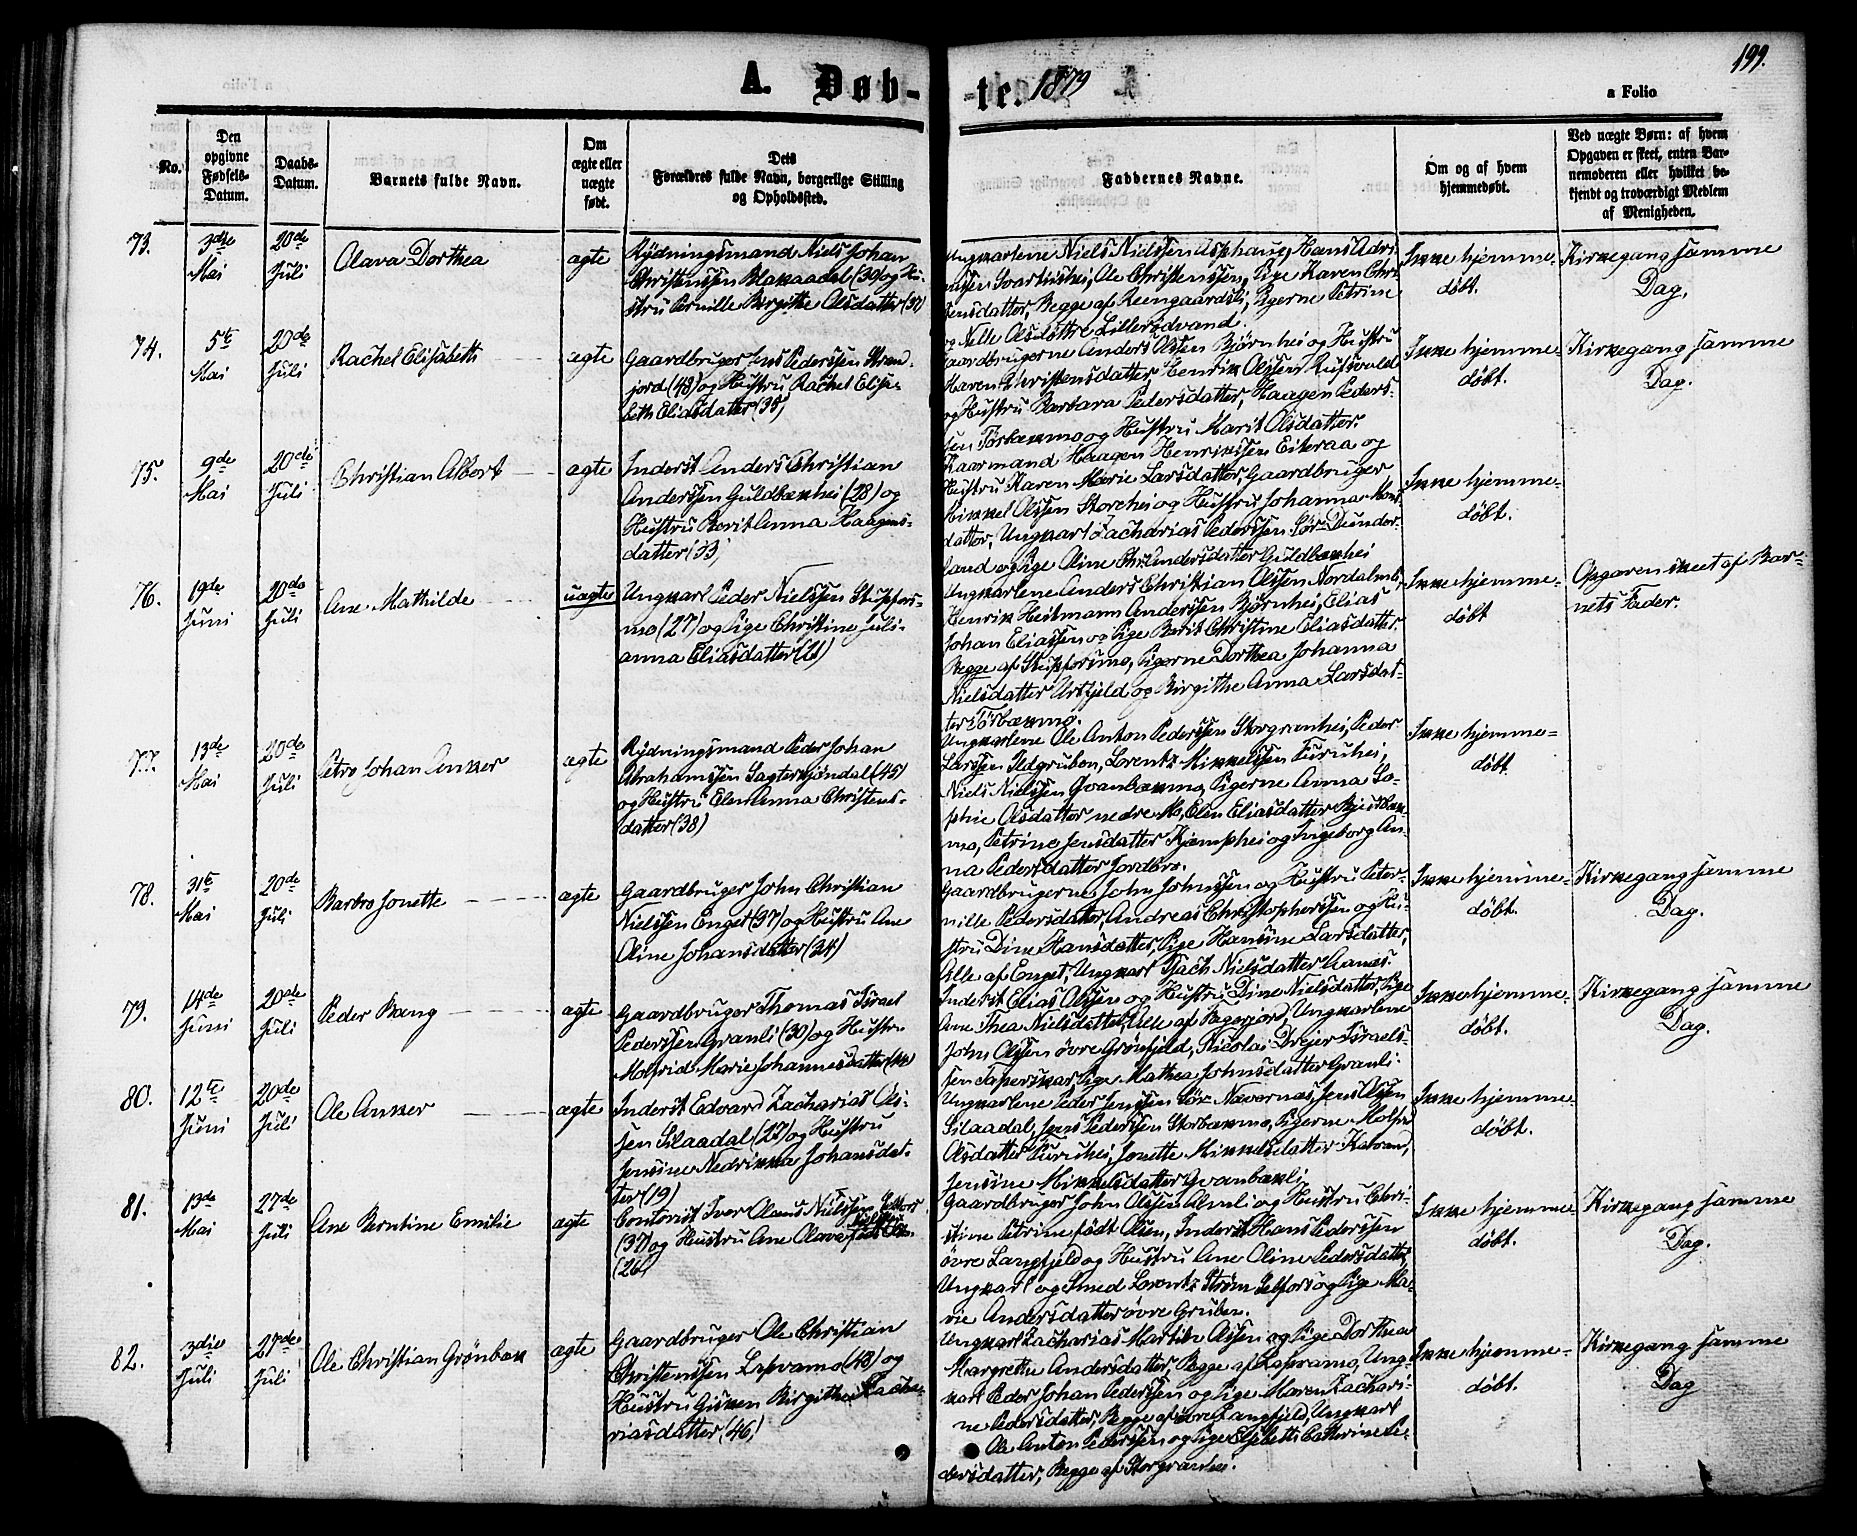 199.
A. Døb-
te. 1879
a Folio
No.
Den
opgivne
Fødsels-
Datum.
Daabs-
Datum.
Barnets fulde Navn.
Om
ægte eller
uægte
født.
Dets
Forældres fulde Navn, borgerlige Stilling
og Opholdssted.
Faddernes Navne.
Om og af hvem
hjemmedøbt.
Ved uægte Børn: af hvem
Opgaven er skeet, enten Bar-
nemoderen eller hvilket be-
kjendt og troværdigt Medlem
af Menigheden.
73.
3die
Mai
20de
Juli
Olava Dorthea
ægte
Rydningsmand Niels Johan
Christenssen Blakaadal (39) og Hu-
stru Pernille Birgitthe Olsdatter (37)
Ungkarlene Niels Nielssen Asphaug, Hans Adri-
anssen Svartishei, Ole Christenssen, Pige Karen Chri-
stensdatter, Begge af Reengaardsli, Pigerne Petrine
og Nelle Olsdøttre Lillerødvand.
Ikke hjemme-
døbt.
Kirkegang samme
Dag.
74.
5te
Mai
20de
Juli
Rachel Elisabeth
ægte
Gaardbruger Jens Pederssen Stran-
jord (48) og Hustru Rachel Elisa-
beth Eliasdatter (38)
Gaardbrugerne Anders Olssen Bjørnhei og Hustru
Maren Christensdatter, Henrik Olssen Rufsvold
og Hustru Barbara Pedersdatter, Haagen Peders-
sen Tørbækmo og Hustru Marit Olsdatter.
Ikke hjemme-
døbt.
Kirkegang samme
Dag.
75.
9de
Mai
20de
Juli
Christian Albert
ægte
Inderst Anders Christian
Anderssen Guldbækhei (28) og
Hustru Berit Anna Haagens-
datter (33)
Kaarmand Haagen Henrikssen Eiteraa og
Hustru Karen Marie Larsdatter, Gaardbruger
Mikkel Olssen Storehei og Hustru Johanna Mons-
datter, Ungkarl Zacharias Pederssen Sør-Dunder-
land og Pige Oline Andersdatter Guldbækhei
Ikke hjemme-
døbt.
76.
19de
Juni
20de
Juli
Ane Mathilde
uægte
Ungkarl Peder Nielssen Stupfors-
mo (27) og Pige Christine Juli-
anna Eliasdatter (21)
Ungkarlene Anders Christian Olssen Nordalmli,
Henrik Heitmann Anderssen Bjørnhei, Elias
Johan Eliassen og Pige Berit Christine Eliasdatter,
Begge af Stupforsmo, Pigerne Dorthea Johanna
Nielsdatter Urtfjeld og Birgithe Anna Larsdat-
ter Tørbækmo.
Ikke hjemme-
døbt
Opgaven skeet af Bar-
nets Fader.
77.
13de
Mai
20de
Juli
Petro Johan Anker
ægte
Rydningsmand Peder Johan
Abrahamssen Sagterkjøndal (45)
og Hustru Elen Anna Christens-
datter (38)
Ungkarlene Ole Anton Pederssen Storgranhei, Peder
Larssen Sedgruben, Lorentz Mikkelssen Furuhei,
Niels Nielssen Qvanbækmo, Pigerne Anna So-
phie Olsdatter nedre Mo, Elen Eliasdatter Bjelbæk-
mo, Petrine Jensdatter Kjæmphei og Ingeborg An-
na Pedersdatter Jordbro.
Ikke hjemme-
døbt.
78.
31te
Mai
20de
Juli
Barbro Jonette
ægte
Gaardbruger John Christian
Nielssen Enget (37) og Hustru Ane
Oline Johansdatter (34)
Gaardbrugerne John Johnssen og Hustru Peter-
nille Pedersdatter, Andreas Christopherssen og Hu-
stru Dine Hansdatter, Pige Hansine Larsdatter,
Alle af Enget, Ungkarl Isach Nielsdatter Aanæs.
Ikke hjemme-
døbt.
Kirkegang samme
Dag.
79.
14de
Juni
20de
Juli
Peder Bang
ægte
Gaardbruger Thomas Israel
Pederssen Granli (30) og Hustru
Molfrid Marie Johannesdatter (44)
Inderst Elias Olssen og Hustru Dine Nielsdatter, Pige
Ane Thea Nielsdatter, Alle af Bagerjord, Ungkarlene
John Olssen øvre Grønfjeld, Nicolai Drejer Israels-
sen Taperskar, Pige Mathea Johnsdatter Granli
Ikke hjemme-
døbt.
Kirkegang samme
Dag.
80.
12te
Juni
20de
Juli
Ole Anker
ægte
Inderst Edvard Zacharias Ols-
sen Silaadal (27) og Hustru
Jensine Nedrikka Johansdat-
ter (19)
Ungkarlene Peder Jenssen Sør Nævernæs, Jens Olssen
Silaadal, Jens Pederssen Storbækmo, Pigerne Molfri
Olsdatter Furuhei, Jonette Mikkelsdatter Kalvand,
Jensine Mikkelsdatter Qvanbækli
Ikke hjemme-
døbt.
81.
13de
Mai
27de
Juli
Ane Berntine Emilie
ægte
Contorist Iver Olaus Nielssen Selfors
(37) og Hustru Ane Olava født Ols.
(26)
Gaardbruger John Olssen Almli og Hustru Chri-
stine Petrine født Olsen, Inderst Hans Pederssen
øvre Langfjeld og Hustru Ane Oline Pedersdatter,
Ungkarl og Smed Lorentz Strøm Selfors og Pige Ma-
rie Andersdatter øvre Gruben.
Ikke hjemme-
døbt.
Kirkegang samme
Dag.
82.
3die
Juli
27de
Juli
Ole Christian Grønbæk
ægte
Gaardbruger Ole Christian
Christenssen Lapramo (48) og
Hustru Gisken Birgithe Zacha-
riasdatter (46)
Ungkarl Zacharias Martin Olssen og Pige Dorthea
Margrethe Andersdatter, Begge af Lapramo, Ung-
karl Peder Johan Pederssen og Pige Maren Zachari-
ne Pedersdatter, Begge af øvre Langfjeld, Ungkarl
Ole Anton Pederssen og Pige Elisabeth Cathrine Pe-
dersdatter, Begge af Storgranhei.
Ikke hjemme-
døbt.
Kirkegang samme
Dag